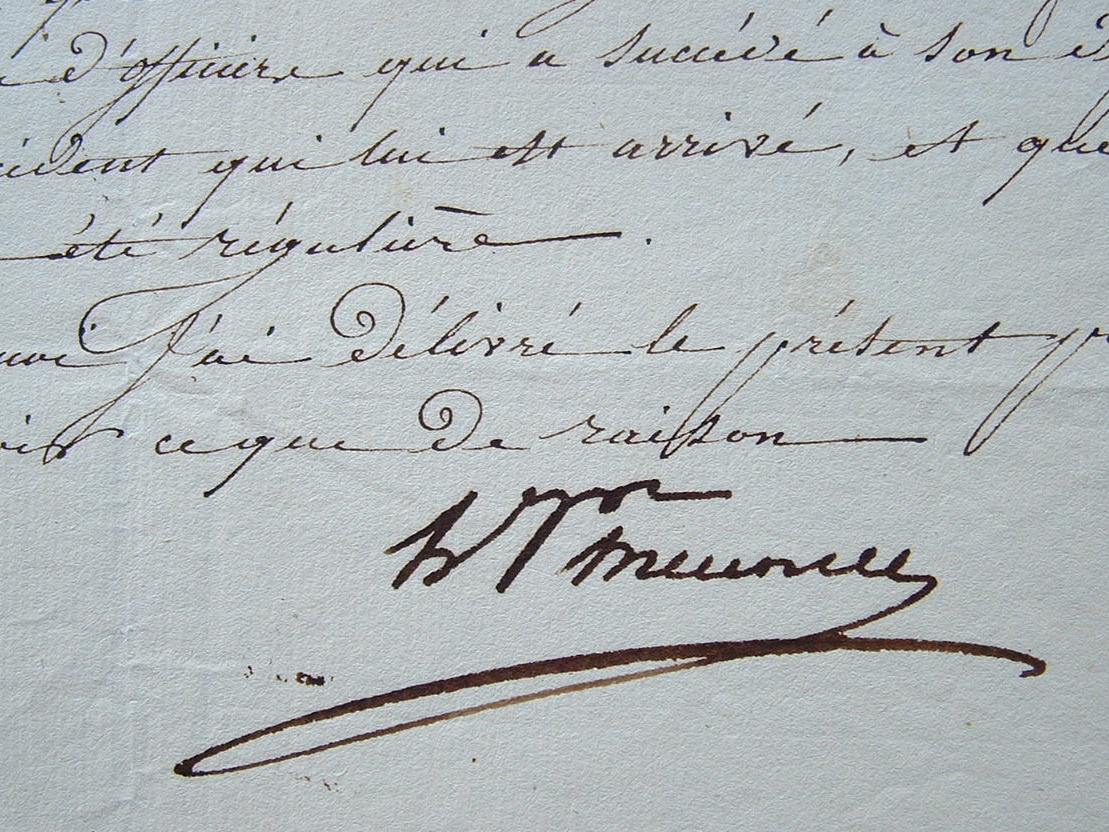 d'officier qui a succédé à son
qui lui est arrivé, et que
été régulière.
J'ai délivré le présent
ce que de raison